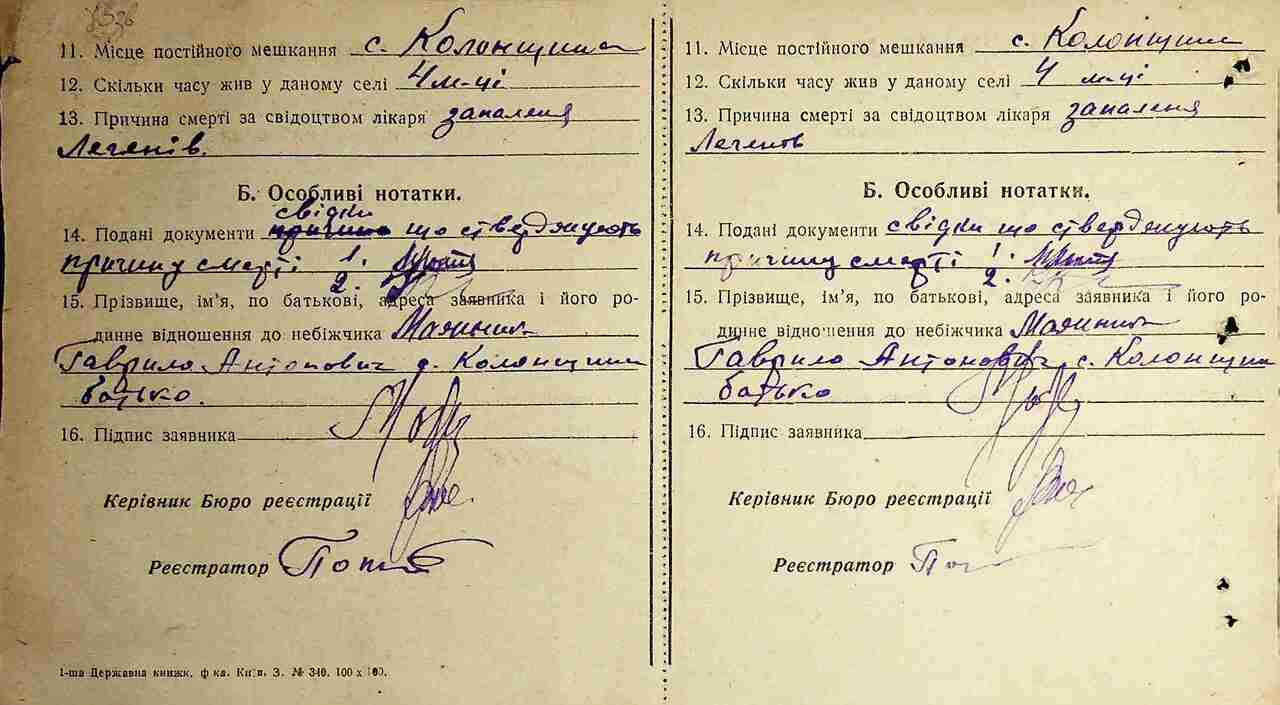 11. Місце постійного мешкання с. Колонщина
12. Скільки часу жив у даному селі 4 м-ці
13. Причина смерті за свідоцтвом лікаря запаленя
Легенів.
Б. Особливі нотатки.
свідки
14. Подані документи що стверджують
причину смерті 1.
2.
15. Прізвище, ім’я, по батькові, адреса заявника і його ро-
динне відношення до небіжчика
Гаврило Антонович с. Колонщина
батько.
16. Підпис заявника
Керівник Бюро реєстрації
Реєстратор
1-ша Державна книжк. ф-ка. Київ. З. № 340. 100 х 100.
11. Місце постійного мешкання с. Колонщина
12. Скільки часу жив у даному селі 4 м-ці
13. Причина смерті за свідоцтвом лікаря запаленя
Легенів
Б. Особливі нотатки.
14. Подані документи свідки що стверджують
причину смерті 1.
2.
15. Прізвище, ім’я, по батькові, адреса заявника і його ро-
динне відношення до небіжчика
Гаврило Антонович с. Колонщина
батько
16. Підпис заявника
Керівник Бюро реєстрації
Реєстратор